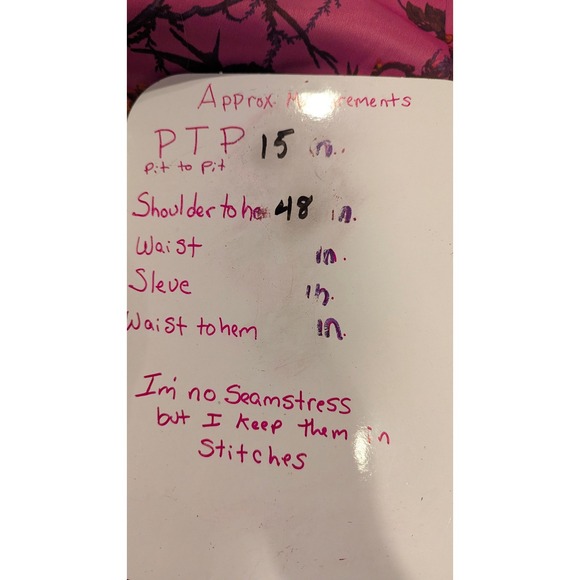 Approx. Mesurements
PTP 15 in.
Pit to Pit
Shoulder to he 48 in.
Waist in.
Sleve in.
Waist to hem in.
I'm no Seamstress
but I keep them in
Stitches